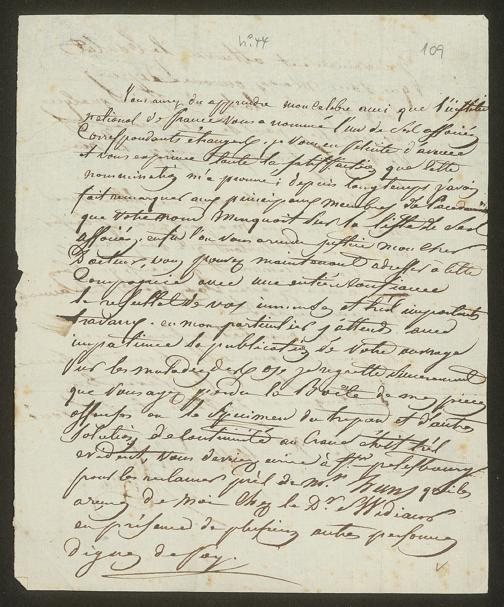 N.º 44
109
Vous avez du apprendre mon celebre ami que l'institut
national de france vous a nommé l'un de ses associés
Correspondants étrangers; je vous en felicite d'avance
et vous exprime toute la satisfaction que cette
nomination m'a prouvé; depuis longtemps j'avois
fait remarquer aux principaux membres de l'academie
que votre nom manquoit sur la liste de ses
associés; enfin l'on vous a rendu justice mon cher
Docteur, vous pouvez maintenant adresser à cette
Compagnie avec une entière confiance
le resultat de vos immenses et très importants
travaux. en mon particulier j'attend avec
impatience la publication de votre ouvrage
sur les maladies des os je regrette sincerement
que vous ayez perdu la Boëte de mes pièces
ou le specimen du trepan et d'autres
solutions de continuité au crane étoit très
evident, vous devriez ecrire à S.t petersbourg
pour les reclamer près de M.r qui les
a de moi chez le D.r
en presence de plusieurs autres personnes
dignes de foy.